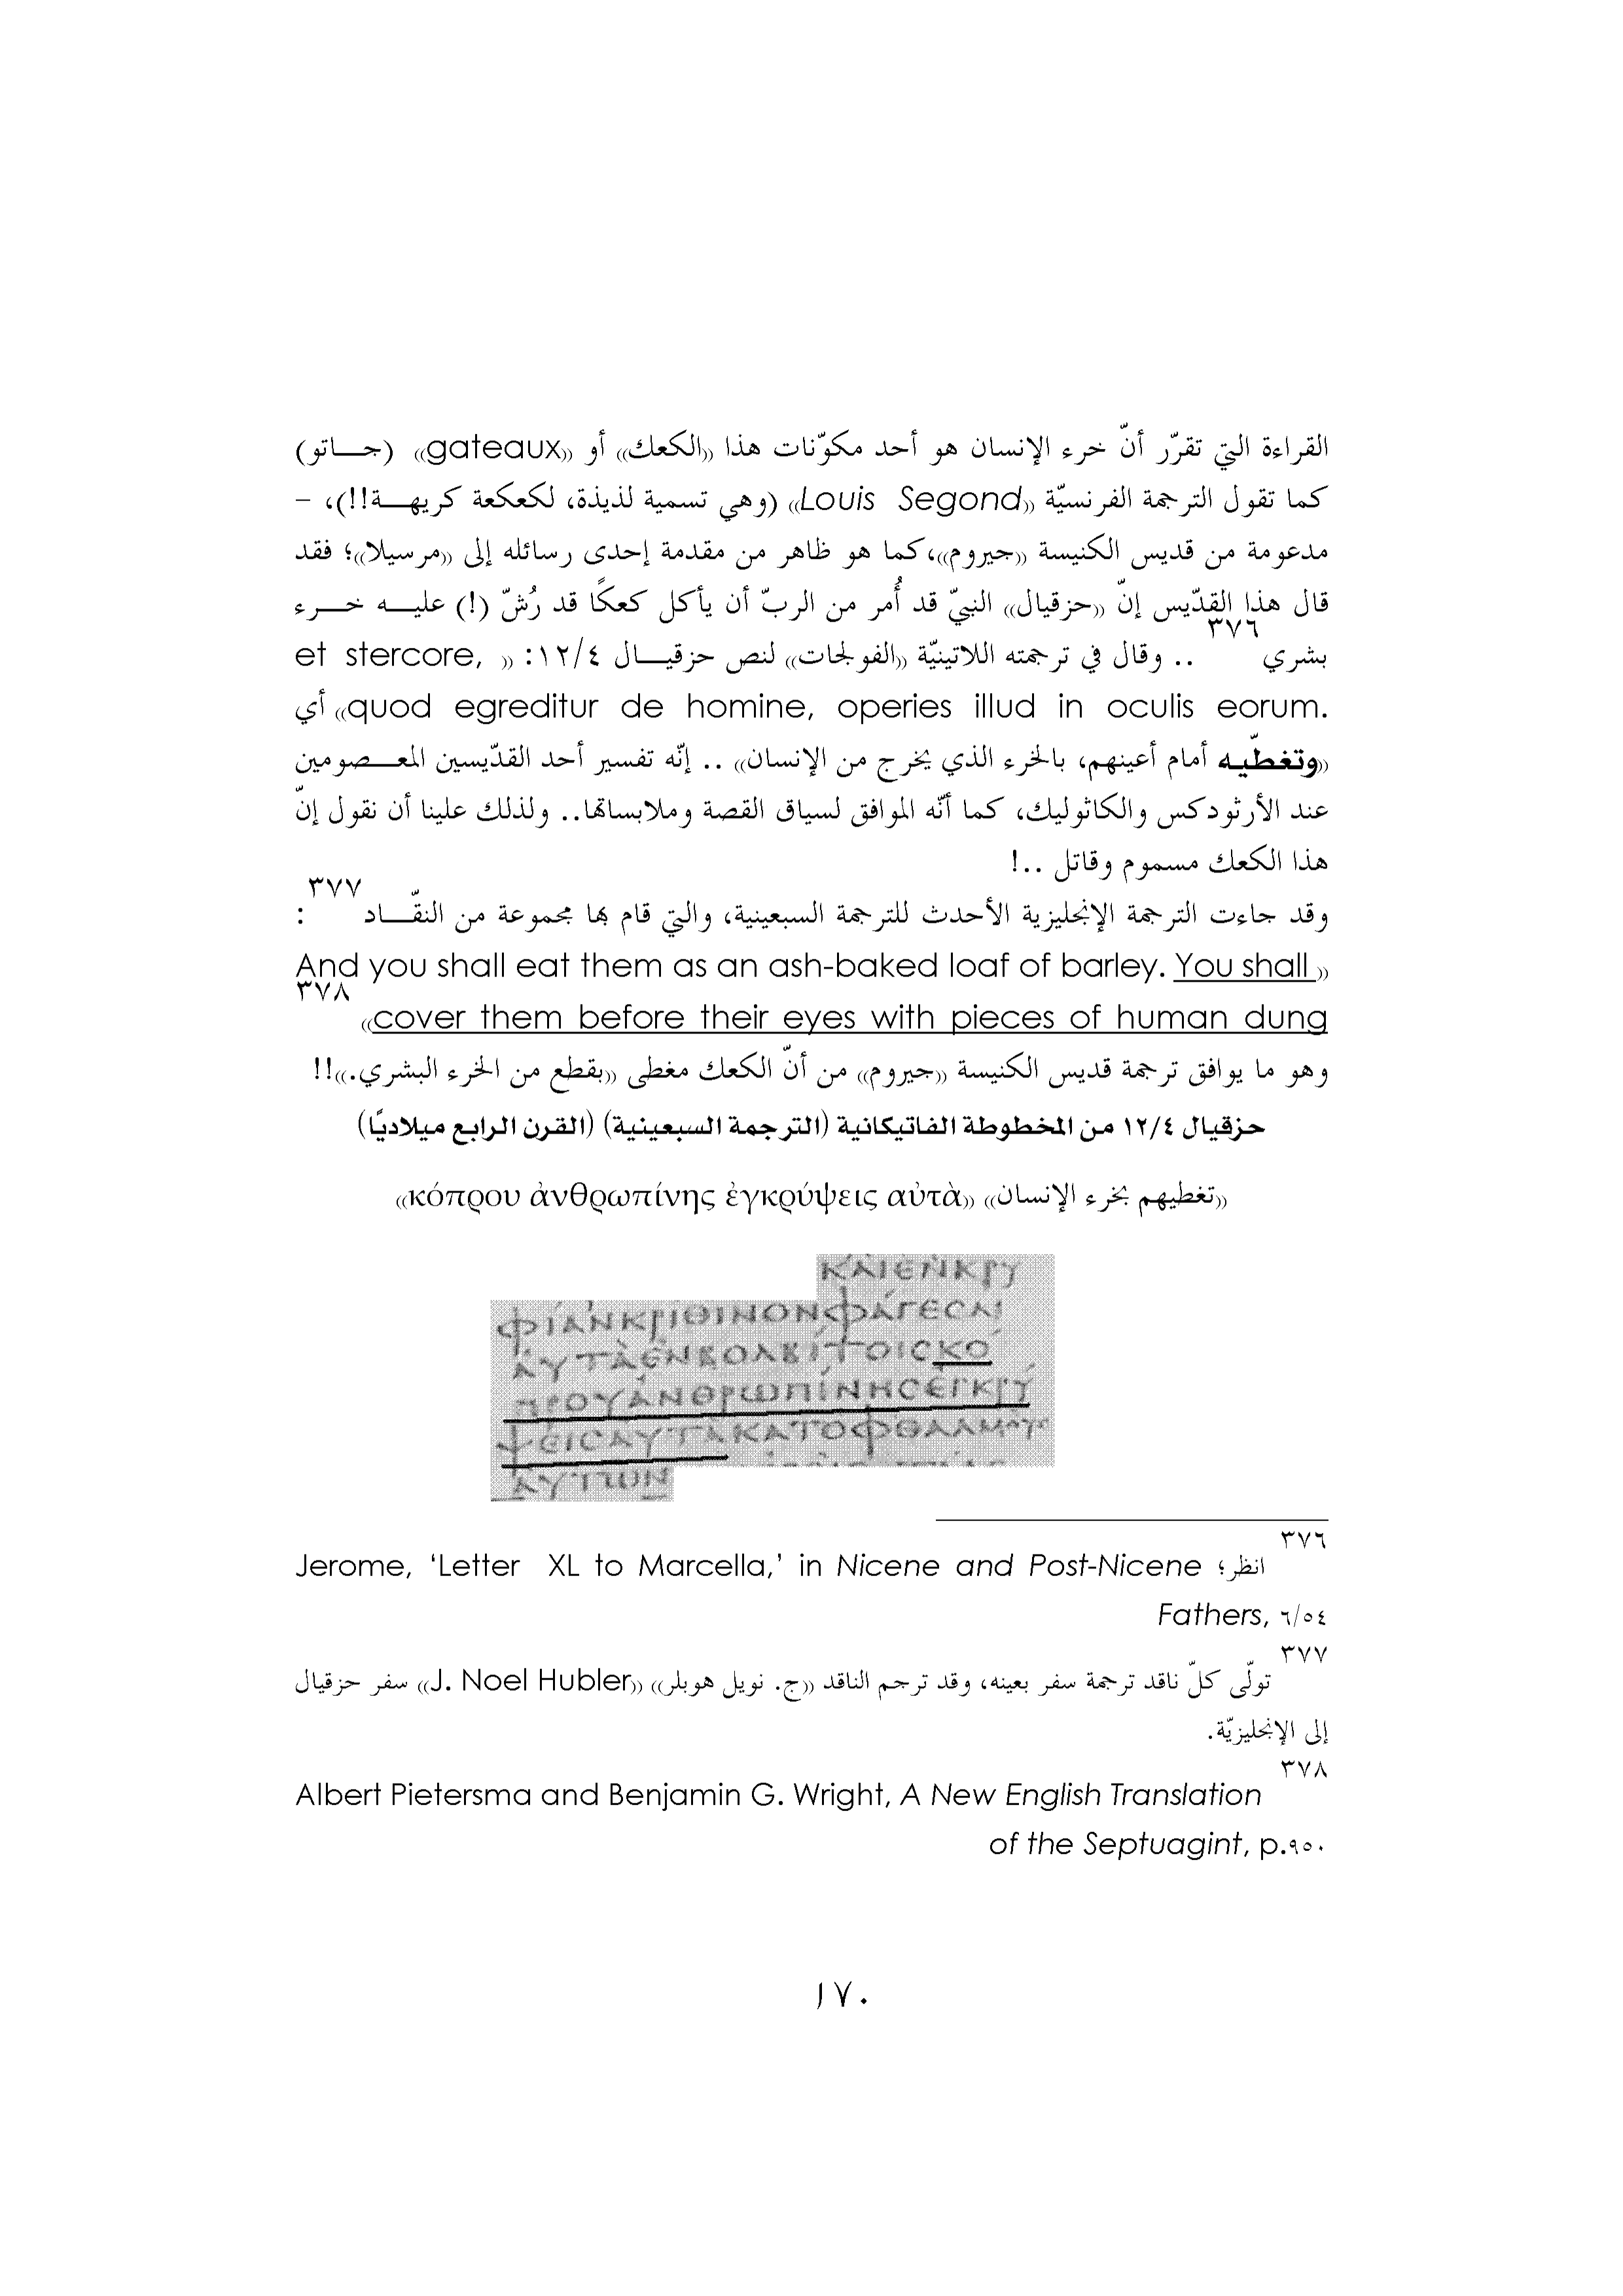 القراءة التي تقرّر أنّ خرء الإنسان هو أحد مكوّنات هذا «الكعك» أو «gateaux» (جـــاتو)
كما تقول الترجمة الفرنسيّة «Louis Segond» (وهي تسمية لذيذة، لكعكعة كريهـــة!!)، –
مدعومة من قديس الكنيسة «جيروم»،كما هو ظاهر من مقدمة إحدى رسائله إلى «مرسيلا»؛ فقد
قال هذا القدّيس إنّ «حزقيال» النبيّ قد أُمر من الربّ أن يأكل كعكًا قد رُشّ (!) عليـــه خـــرء
بشري ٣٧٦ .. وقال في ترجمته اللاتينيّة «الفولجات» لنص حزقيـــال ١٢/٤: « et stercore,
quod egreditur de homine, operies illud in oculis eorum.» أي
«وتغطّيه أمام أعينهم، بالخرء الذي يخرج من الإنسان» .. إنّه تفسير أحد القدّيسين المعـــصومين
عند الأرثودكس والكاثوليك، كما أنّه الموافق لسياق القصة وملابساتها.. ولذلك علينا أن نقول إنّ
هذا الكعك مسموم وقاتل ..!
وقد جاءت الترجمة الإنجليزية الأحدث للترجمة السبعينية، والتي قام بها مجموعة من النقّـــاد ٣٧٧ :
«And you shall eat them as an ash-baked loaf of barley. You shall
cover them before their eyes with pieces of human dung» ٣٧٨
وهو ما يوافق ترجمة قديس الكنيسة «جيروم» من أنّ الكعك مغطى «بقطع من الخرء البشري.»!!
حزقيال ١٢/٤ من المخطوطة الفاتيكانية (الترجمة السبعينية) (القرن الرابع ميلاديًا)
«تغطيهم بخرء الإنسان» «κόπρου ἀνθρωπίνης ἐγκρύψεις αὐτὰ»
ΚΑΙΕΝΚΡΥ
ΦΙΑΝΚΡΙΘΙΝΟΝΦΑΓΕСΑΙ
ΑΥΤΑΕΝΒΟΛΒΙΤΟΙСΚΟ
ΠΡΟΥΑΝΘΡΩΠΙΝΗСΕΓΚΡΥ
ΨΕΙСΑΥΤΑΚΑΤΟΦΘΑΛΜΟΥС
ΑΥΤΩΝ
٣٧٦ انظر؛ Jerome, ‘Letter XL to Marcella,’ in Nicene and Post-Nicene
Fathers, ٦/٥٤
٣٧٧ تولّى كلّ ناقد ترجمة سفر بعينه، وقد ترجم الناقد «ج. نويل هوبلر» «J. Noel Hubler» سفر حزقيال
إلى الإنجليزيّة.
٣٧٨ Albert Pietersma and Benjamin G. Wright, A New English Translation
of the Septuagint, p.٩٥٠
١٧٠